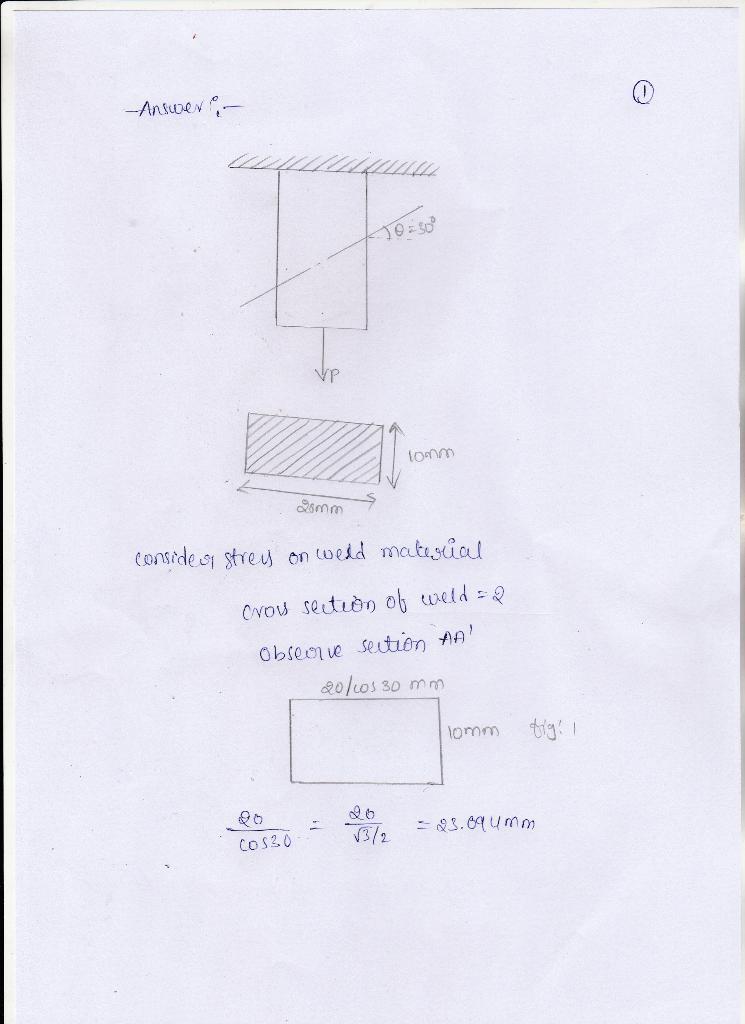 Answer :-
1
θ=30°
P
10mm
20mm
consider stress on weld material
cross section of weld = 2
observe section AA'
20/cos 30 mm
10mm fig: 1
20/cos30 = 20/√3/2 = 23.094mm